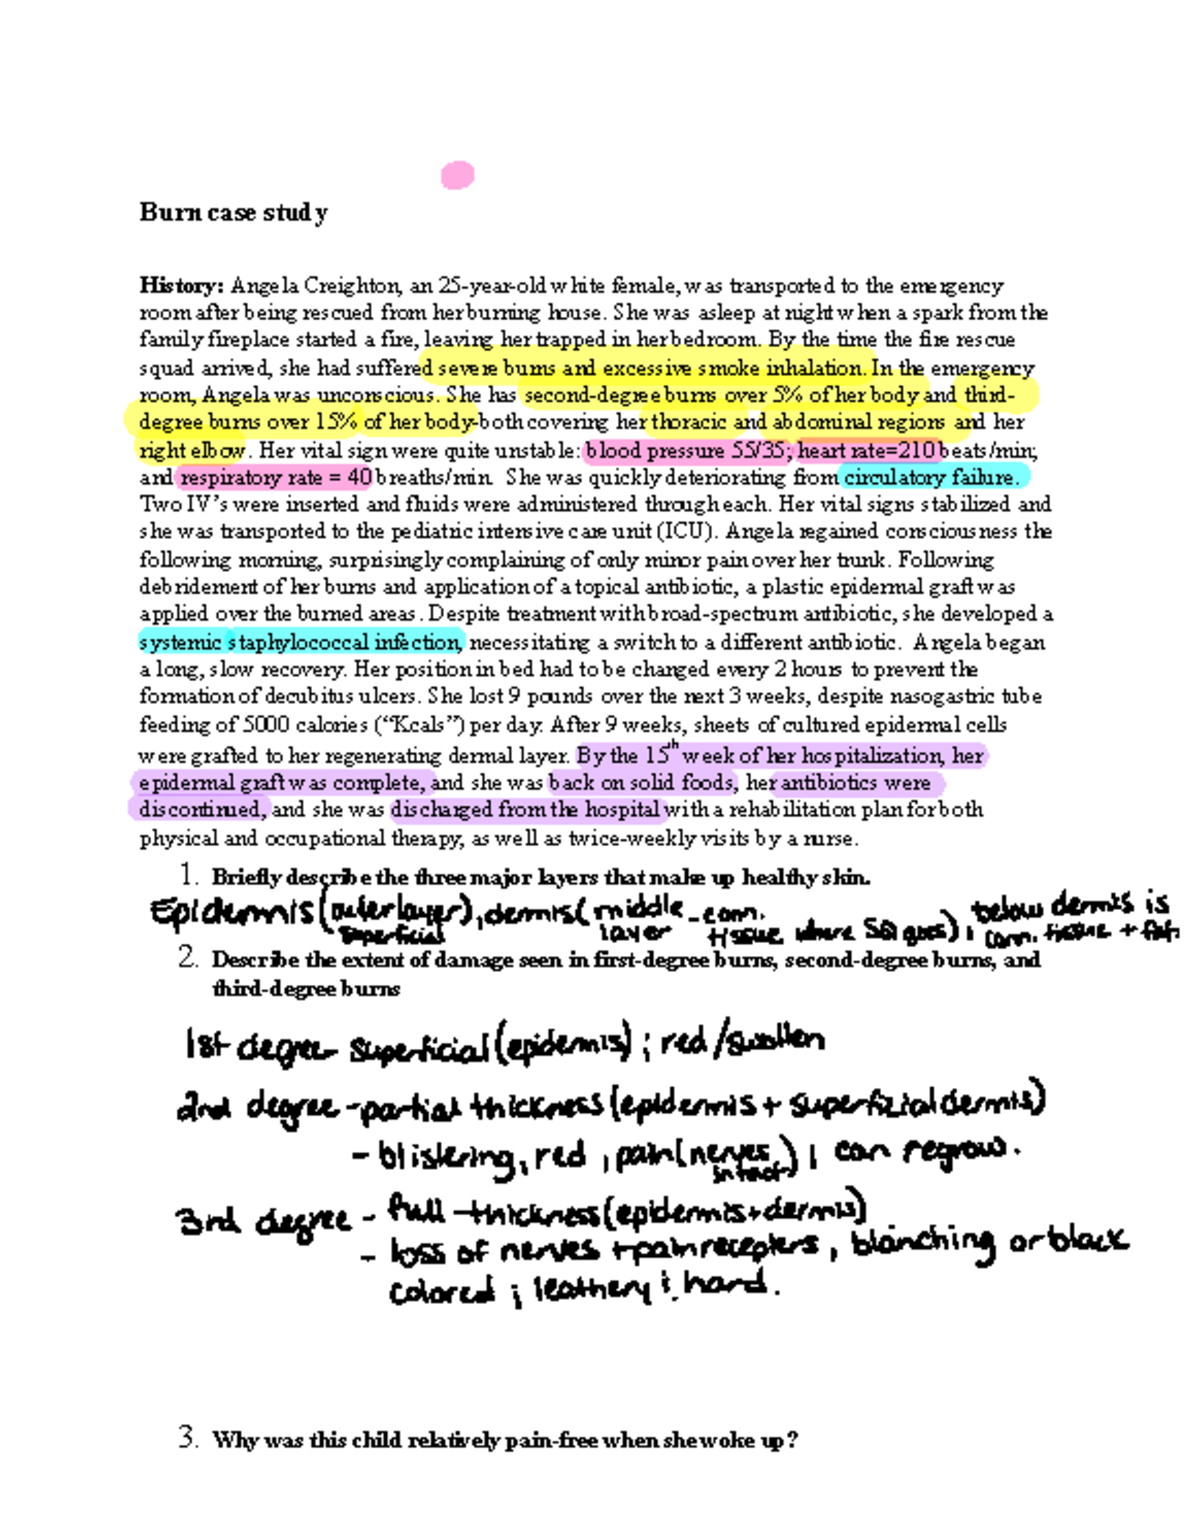 Burn case study
History: Angela Creighton, an 25-year-old white female, was transported to the emergency
room after being rescued from her burning house. She was asleep at night when a spark from the
family fireplace started a fire, leaving her trapped in her bedroom. By the time the fire rescue
squad arrived, she had suffered severe burns and excessive smoke inhalation. In the emergency
room, Angela was unconscious. She has second-degree burns over 5% of her body and third-
degree burns over 15% of her body-both covering her thoracic and abdominal regions and her
right elbow. Her vital sign were quite unstable: blood pressure 55/35; heart rate=210 beats/min;
and respiratory rate = 40 breaths/min. She was quickly deteriorating from circulatory failure.
Two IV's were inserted and fluids were administered through each. Her vital signs stabilized and
she was transported to the pediatric intensive care unit (ICU). Angela regained consciousness the
following morning, surprisingly complaining of only minor pain over her trunk. Following
debridement of her burns and application of a topical antibiotic, a plastic epidermal graft was
applied over the burned areas. Despite treatment with broad-spectrum antibiotic, she developed a
systemic staphylococcal infection, necessitating a switch to a different antibiotic. Angela began
a long, slow recovery. Her position in bed had to be changed every 2 hours to prevent the
formation of decubitus ulcers. She lost 9 pounds over the next 3 weeks, despite nasogastric tube
feeding of 5000 calories ("Kcals") per day. After 9 weeks, sheets of cultured epidermal cells
were grafted to her regenerating dermal layer. By the 15th week of her hospitalization, her
epidermal graft was complete, and she was back on solid foods, her antibiotics were
discontinued, and she was discharged from the hospital with a rehabilitation plan for both
physical and occupational therapy, as well as twice-weekly visits by a nurse.
1. Briefly describe the three major layers that make up healthy skin.
Epidermis (outer layer), dermis (middle - conn. below dermis is
superficial layer tissue where SQ goes), conn. tissue + fat.
2. Describe the extent of damage seen in first-degree burns, second-degree burns, and
third-degree burns
1st degree- superficial (epidermis) ; red /swollen
2nd degree -partial thickness (epidermis + superfizial dermis)
- blistering, red , pain (nerves ) , can regrow.
intact
3rd degree - full -thickness (epidermis+dermis)
- loss of nerves + pain recepters , blanching or black
colored ; leathery ; hard.
3. Why was this child relatively pain-free when she woke up?